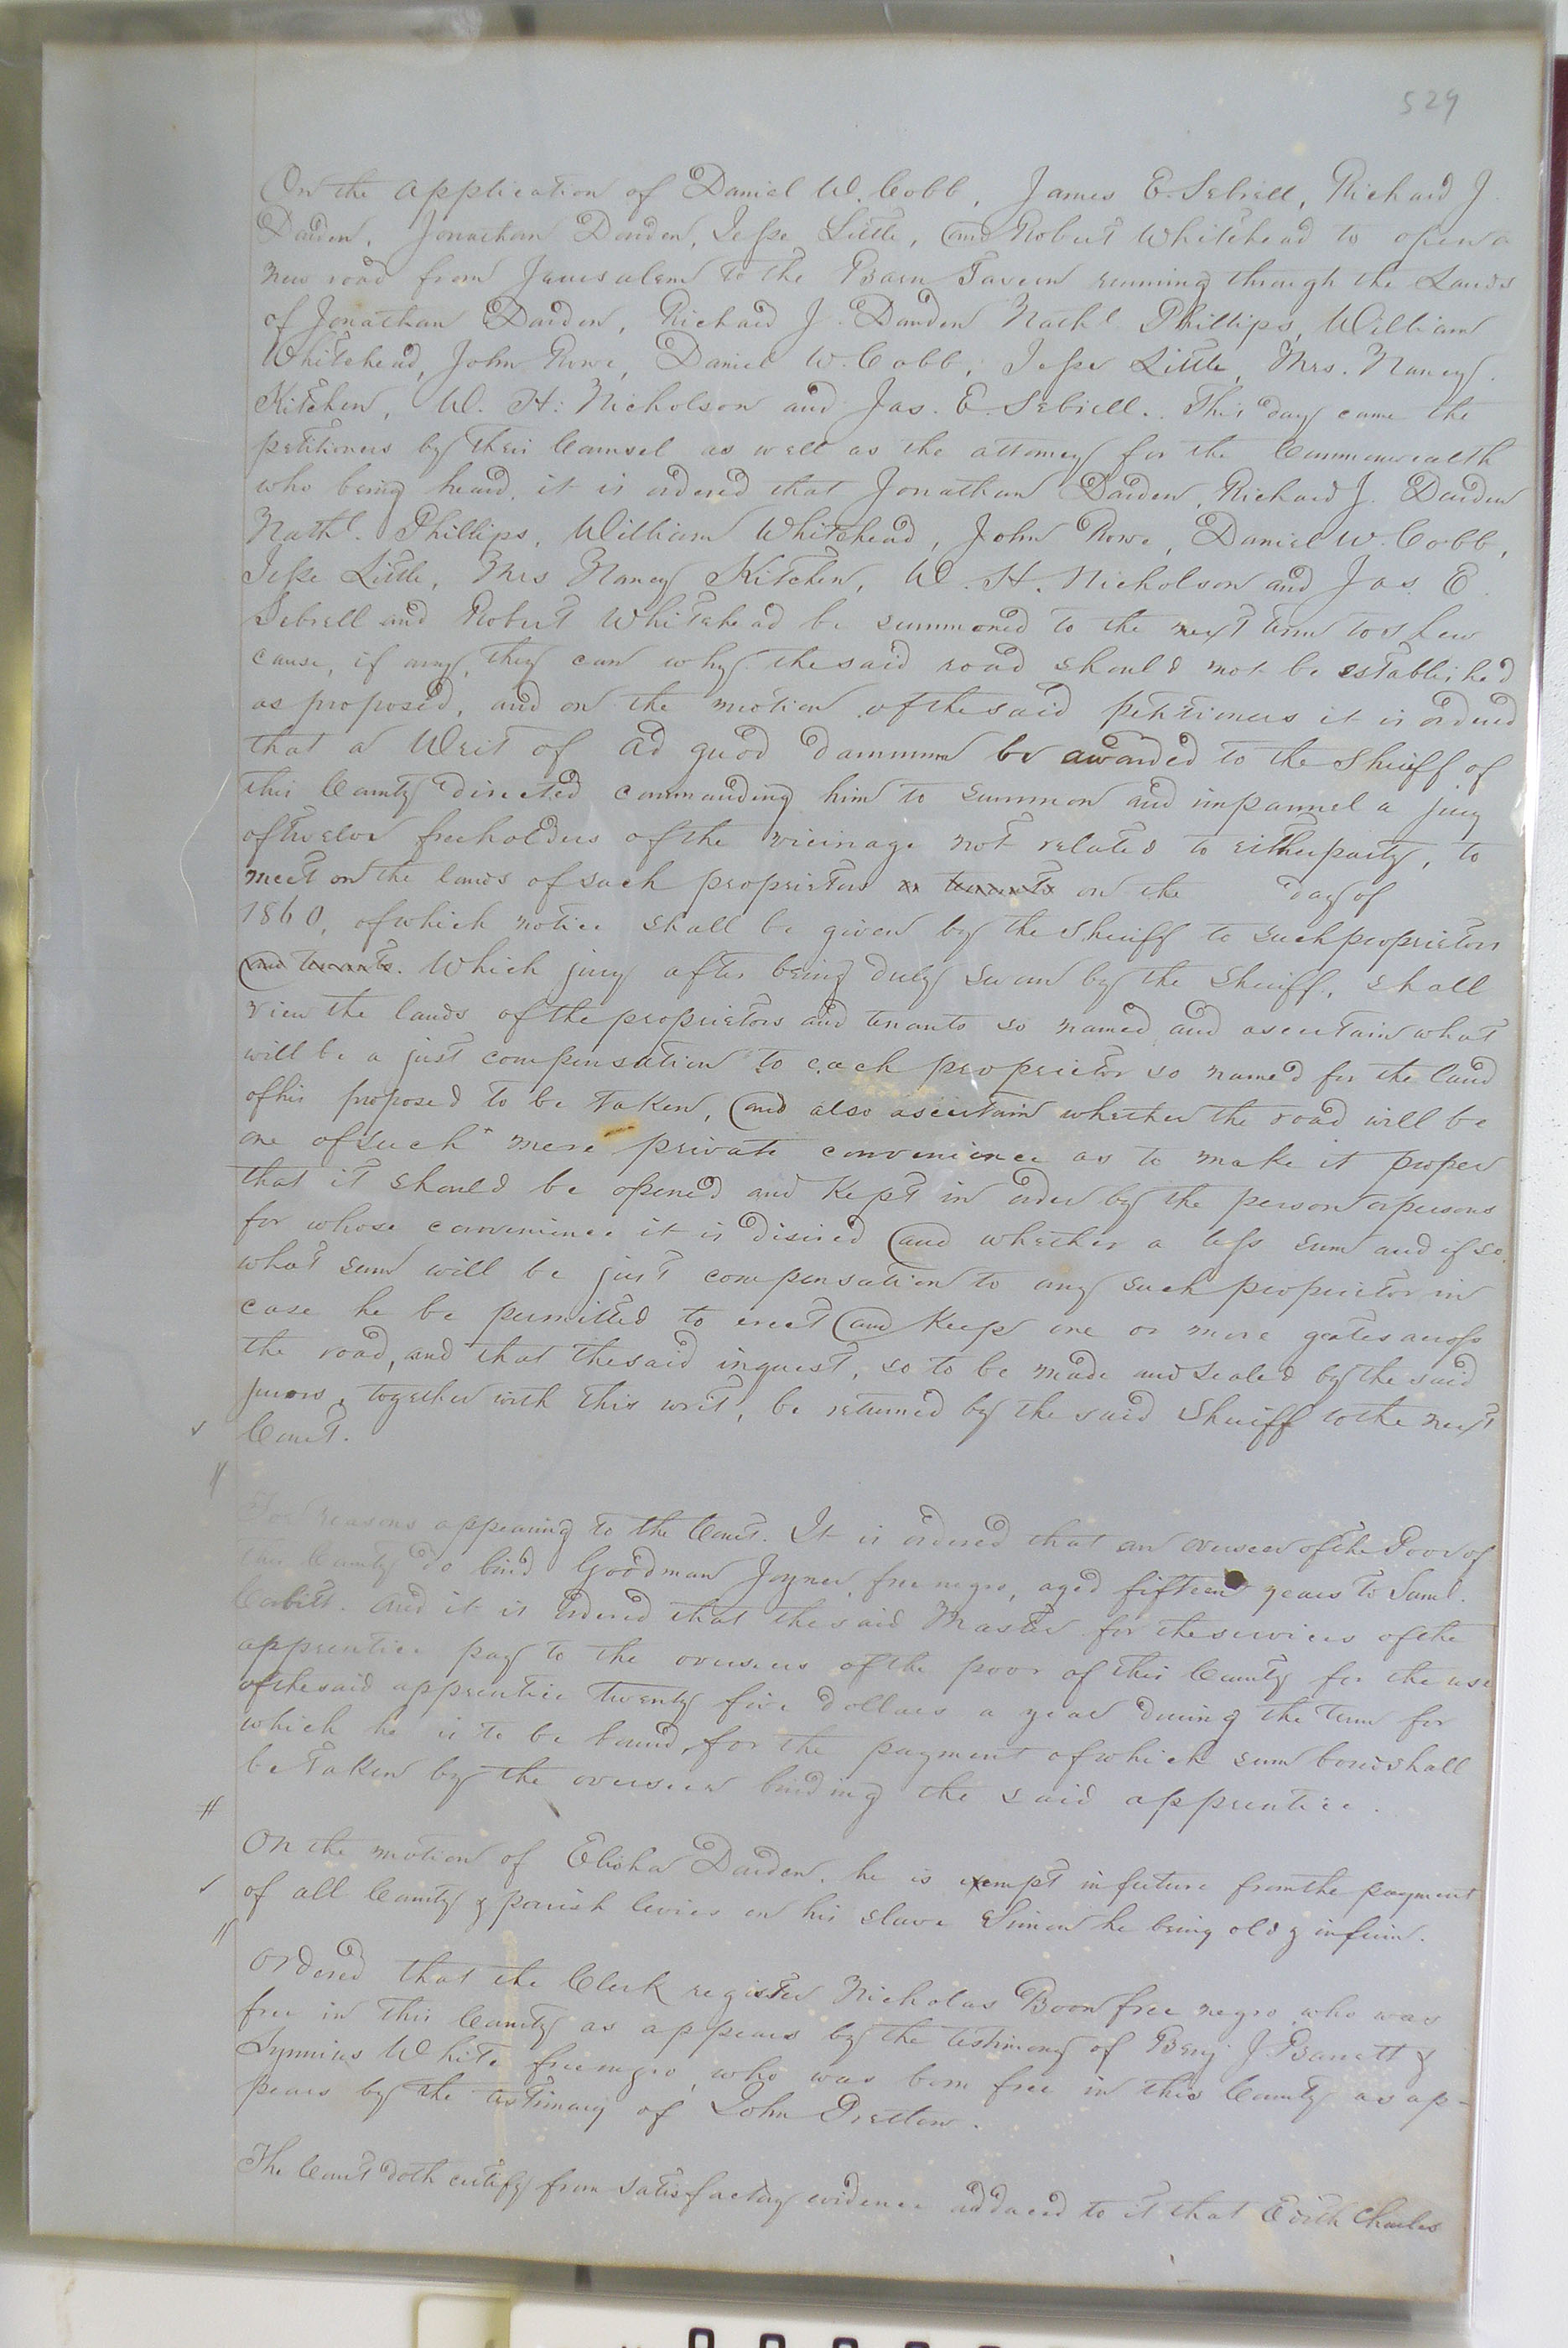 529
On the application of Daniel W. Cobb, James E. Sebrell, Richard J.
Darden, Jonathan Darden, Jesse Little, and Robert Whitehead to open a
new road from Jerusalem to the Barn Tavern running through the Lands
of Jonathan Darden, Richard J. Darden Nathl Phillips, William
Whitehead, John Rowe, Daniel W. Cobb, Jesse Little, Mrs. Nancy
Kitchen, W. H. Nicholson and Jas. E. Sebrell. This day came the
petitioners by their Counsel as well as the attorney for the Commonwealth
who being heard, it is ordered that Jonathan Darden, Richard J. Darden
Nathl. Phillips, William Whitehead, John Rowe, Daniel W. Cobb,
Jesse Little, Mrs Nancy Kitchen, W. H. Nicholson and Jas. E.
Sebrell and Robert Whitehead be summoned to the next term to shew
cause, if any, they can why the said road should not be established
as proposed, and on the motion of the said petitioners it is ordered
that a Writ of ad quod damnum be awarded to the Sheriff of
this County directed commanding him to summon and impannel a jury
of twelve freeholders of the vicinage not related to either party, to
meet on the lands of such proprietors or tenants on the day of
1860, of which notice shall be given by the Sheriff to such proprietors
and tenants. Which jury after being duly sworn by the Sheriff, shall
view the lands of the proprietors and tenants so named and ascertain what
will be a just compensation to each proprietor so named for the land
of his proposed to be taken, and also ascertain whether the road will be
one of such mere private convenience as to make it proper
that it should be opened and Kept in order by the person or persons
for whose convenience it is disired and whether a less sum and if so
what sum will be just compensation to any such proprietor in
case he be permitted to erect and Keep one or more gates across
the road, and that the said inquest, so to be made and sealed by the said
jurors, together with this writ, be returned by the said Sheriff to the next
Court.
For reasons appearing to the Court. It is ordered that an overseer of the Poor of
this County do bind Goodman Joyner, free negro, aged fifteen years to Saml.
Corbitt. And it is ordered that the said Master for the services of the
apprentice pay to the overseers of the poor of this County for the use
of the said apprentice twenty five dollars a year during the term for
which he is to be bound, for the payment of which sum bond shall
be taken by the overseer binding the said apprentice.
On the motion of Elisha Darden, he is exempt in future from the payment
of all County & parish levies on his slave Simon he being old & infirm.
Ordered that the Clerk register Nicholas Boon free negro, who was
free in this County as appears by the testimony of Benj. J. Barrett &
White free negro, who was born free in this County as ap-
pears by the testimony of John Pretlow.
The Court doth certify from satisfactory evidence adduced to it that Edith Charles